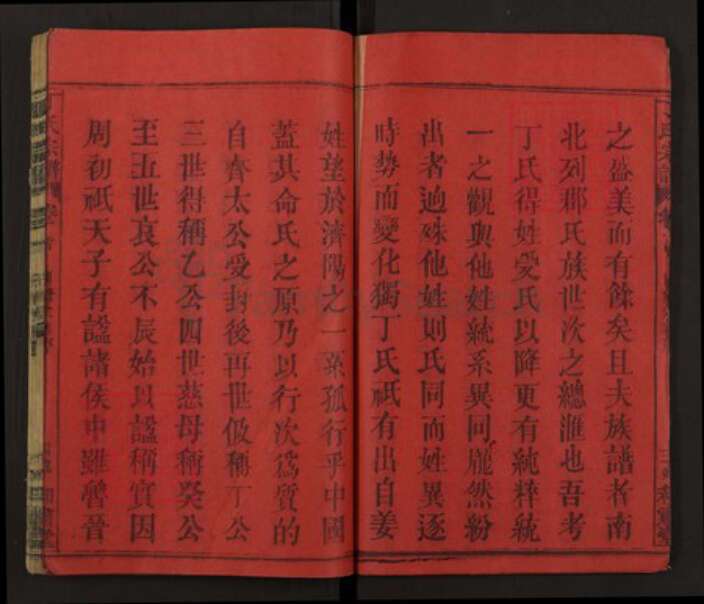 之盛美而有餘矣且夫族譜者南
北列郡氏族世次之總滙也吾考
丁氏得姓受氏以降更有純粹統
一之觀與他姓統系異同龐然紛
出者逈殊他姓則氏同而姓異逐
時勢而變化獨丁氏祇有出自姜
姓望於濟陽之一系孤行乎中國
蓋其命氏之原乃以行次為質的
自齊太公受封後再世伋稱丁公
三世得稱乙公四世慈母稱癸公
至五世哀公不辰始以諡稱實因
周初祇天子有諡諸侯中雖魯晉
氏宗譜